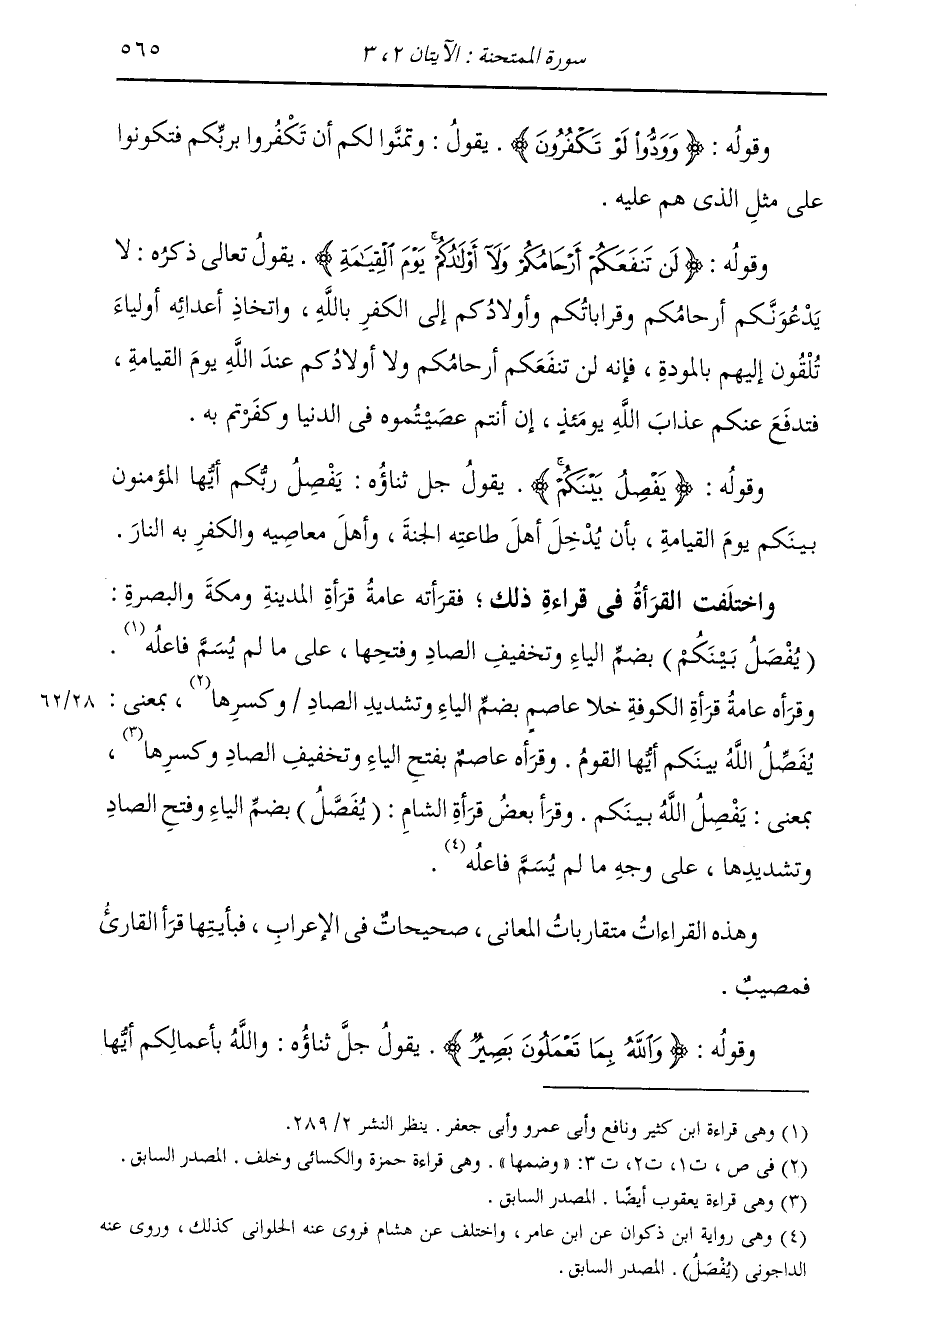 سورة الممتحنة : الآيتان ٢ ، ٣ ٥٦٥
وقولُه : ﴿ وَوَدُّوا۟ لَوْ تَكْفُرُونَ ﴾ . يقولُ : وتمنَّوا لكم أن تَكْفُروا بربِّكم فتكونوا
على مثلِ الذى هم عليه .
وقولُه : ﴿ لَن تَنفَعَكُمْ أَرْحَامُكُمْ وَلَآ أَوْلَٰدُكُمْ ۚ يَوْمَ ٱلْقِيَٰمَةِ ﴾ . يقولُ تعالى ذكرُه : لا
يَدْعُوَنَّكم أرحامُكم وقراباتُكم وأولادُكم إلى الكفرِ باللَّهِ ، واتخاذِ أعدائِه أولياءَ
تُلْقُون إليهم بالمودةِ ، فإنه لن تنفَعَكم أرحامُكم ولا أولادُكم عندَ اللَّهِ يومَ القيامةِ ،
فتدفَعَ عنكم عذابَ اللَّهِ يومَئذٍ ، إن أنتم عصَيْتُموه فى الدنيا وكفَرْتم به .
وقولُه : ﴿ يَفْصِلُ بَيْنَكُمْ ۚ ﴾ . يقولُ جل ثناؤُه : يَفْصِلُ ربُّكم أيُّها المؤمنون
بينَكم يومَ القيامةِ ، بأن يُدْخِلَ أهلَ طاعتِه الجنةَ ، وأهلَ معاصِيه والكفرِ به النارَ .
واختلَفت القرَأةُ فى قراءةِ ذلك ؛ فقرَأته عامةُ قرَأةِ المدينةِ ومكةَ والبصرةِ :
( يُفْصَلُ بَيْنَكُمْ ) بضمِّ الياءِ وتخفيفِ الصادِ وفتحِها ، على ما لم يُسَمَّ فاعلُه(١) .
وقرَأه عامةُ قرَأةِ الكوفةِ خلا عاصمٍ بضمِّ الياءِ وتشديدِ الصادِ / وكسرِها(٢) ، بمعنى : ٦٢/٢٨
يُفَصِّلُ اللَّهُ بينَكم أيُّها القومُ . وقرَأه عاصمٌ بفتحِ الياءِ وتخفيفِ الصادِ وكسرِها(٣) ،
بمعنى : يَفْصِلُ اللَّهُ بينَكم . وقرَأ بعضُ قرَأةِ الشامِ : ( يُفَصَّلُ ) بضمِّ الياءِ وفتحِ الصادِ
وتشديدِها ، على وجهِ ما لم يُسَمَّ فاعلُه(٤) .
وهذه القراءاتُ متقارباتُ المعانى ، صحيحاتٌ فى الإعرابِ ، فبأيتِها قرَأ القارئُ
فمصيبٌ .
وقولُه : ﴿ وَٱللَّهُ بِمَا تَعْمَلُونَ بَصِيرٌ ﴾ . يقولُ جلَّ ثناؤُه : واللَّهُ بأعمالِكم أيُّها
(١) وهى قراءة ابن كثير ونافع وأبى عمرو وأبى جعفر . ينظر النشر ٢/ ٢٨٩.
(٢) فى ص ، ت١، ت٢، ت ٣: «وضمها» . وهى قراءة حمزة والكسائى وخلف . المصدر السابق .
(٣) وهى قراءة يعقوب أيضًا . المصدر السابق .
(٤) وهى رواية ابن ذكوان عن ابن عامر ، واختلف عن هشام فروى عنه الحلوانى كذلك ، وروى عنه
الداجونى (يُفْصَلُ) . المصدر السابق .